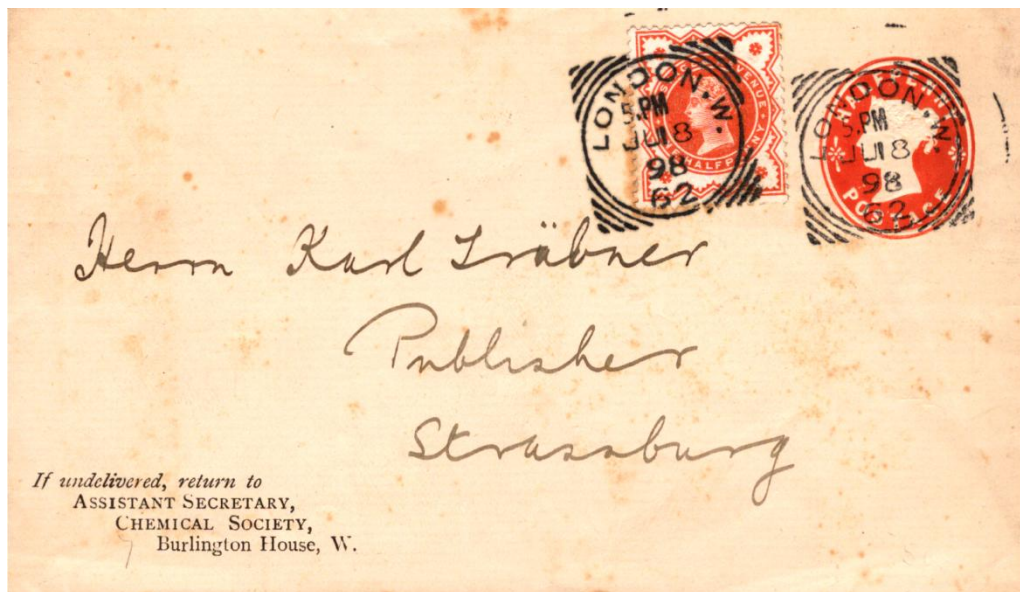 LONDON.W.
5.PM
JU 8
98
62
POSTAGE & REVENUE
HALFPENNY
LONDON.W.
5.PM
JU 8
98
62
POSTAGE
Herrn Karl Trübner
Publisher
Strassburg
If undelivered, return to
ASSISTANT SECRETARY,
CHEMICAL SOCIETY,
Burlington House, W.